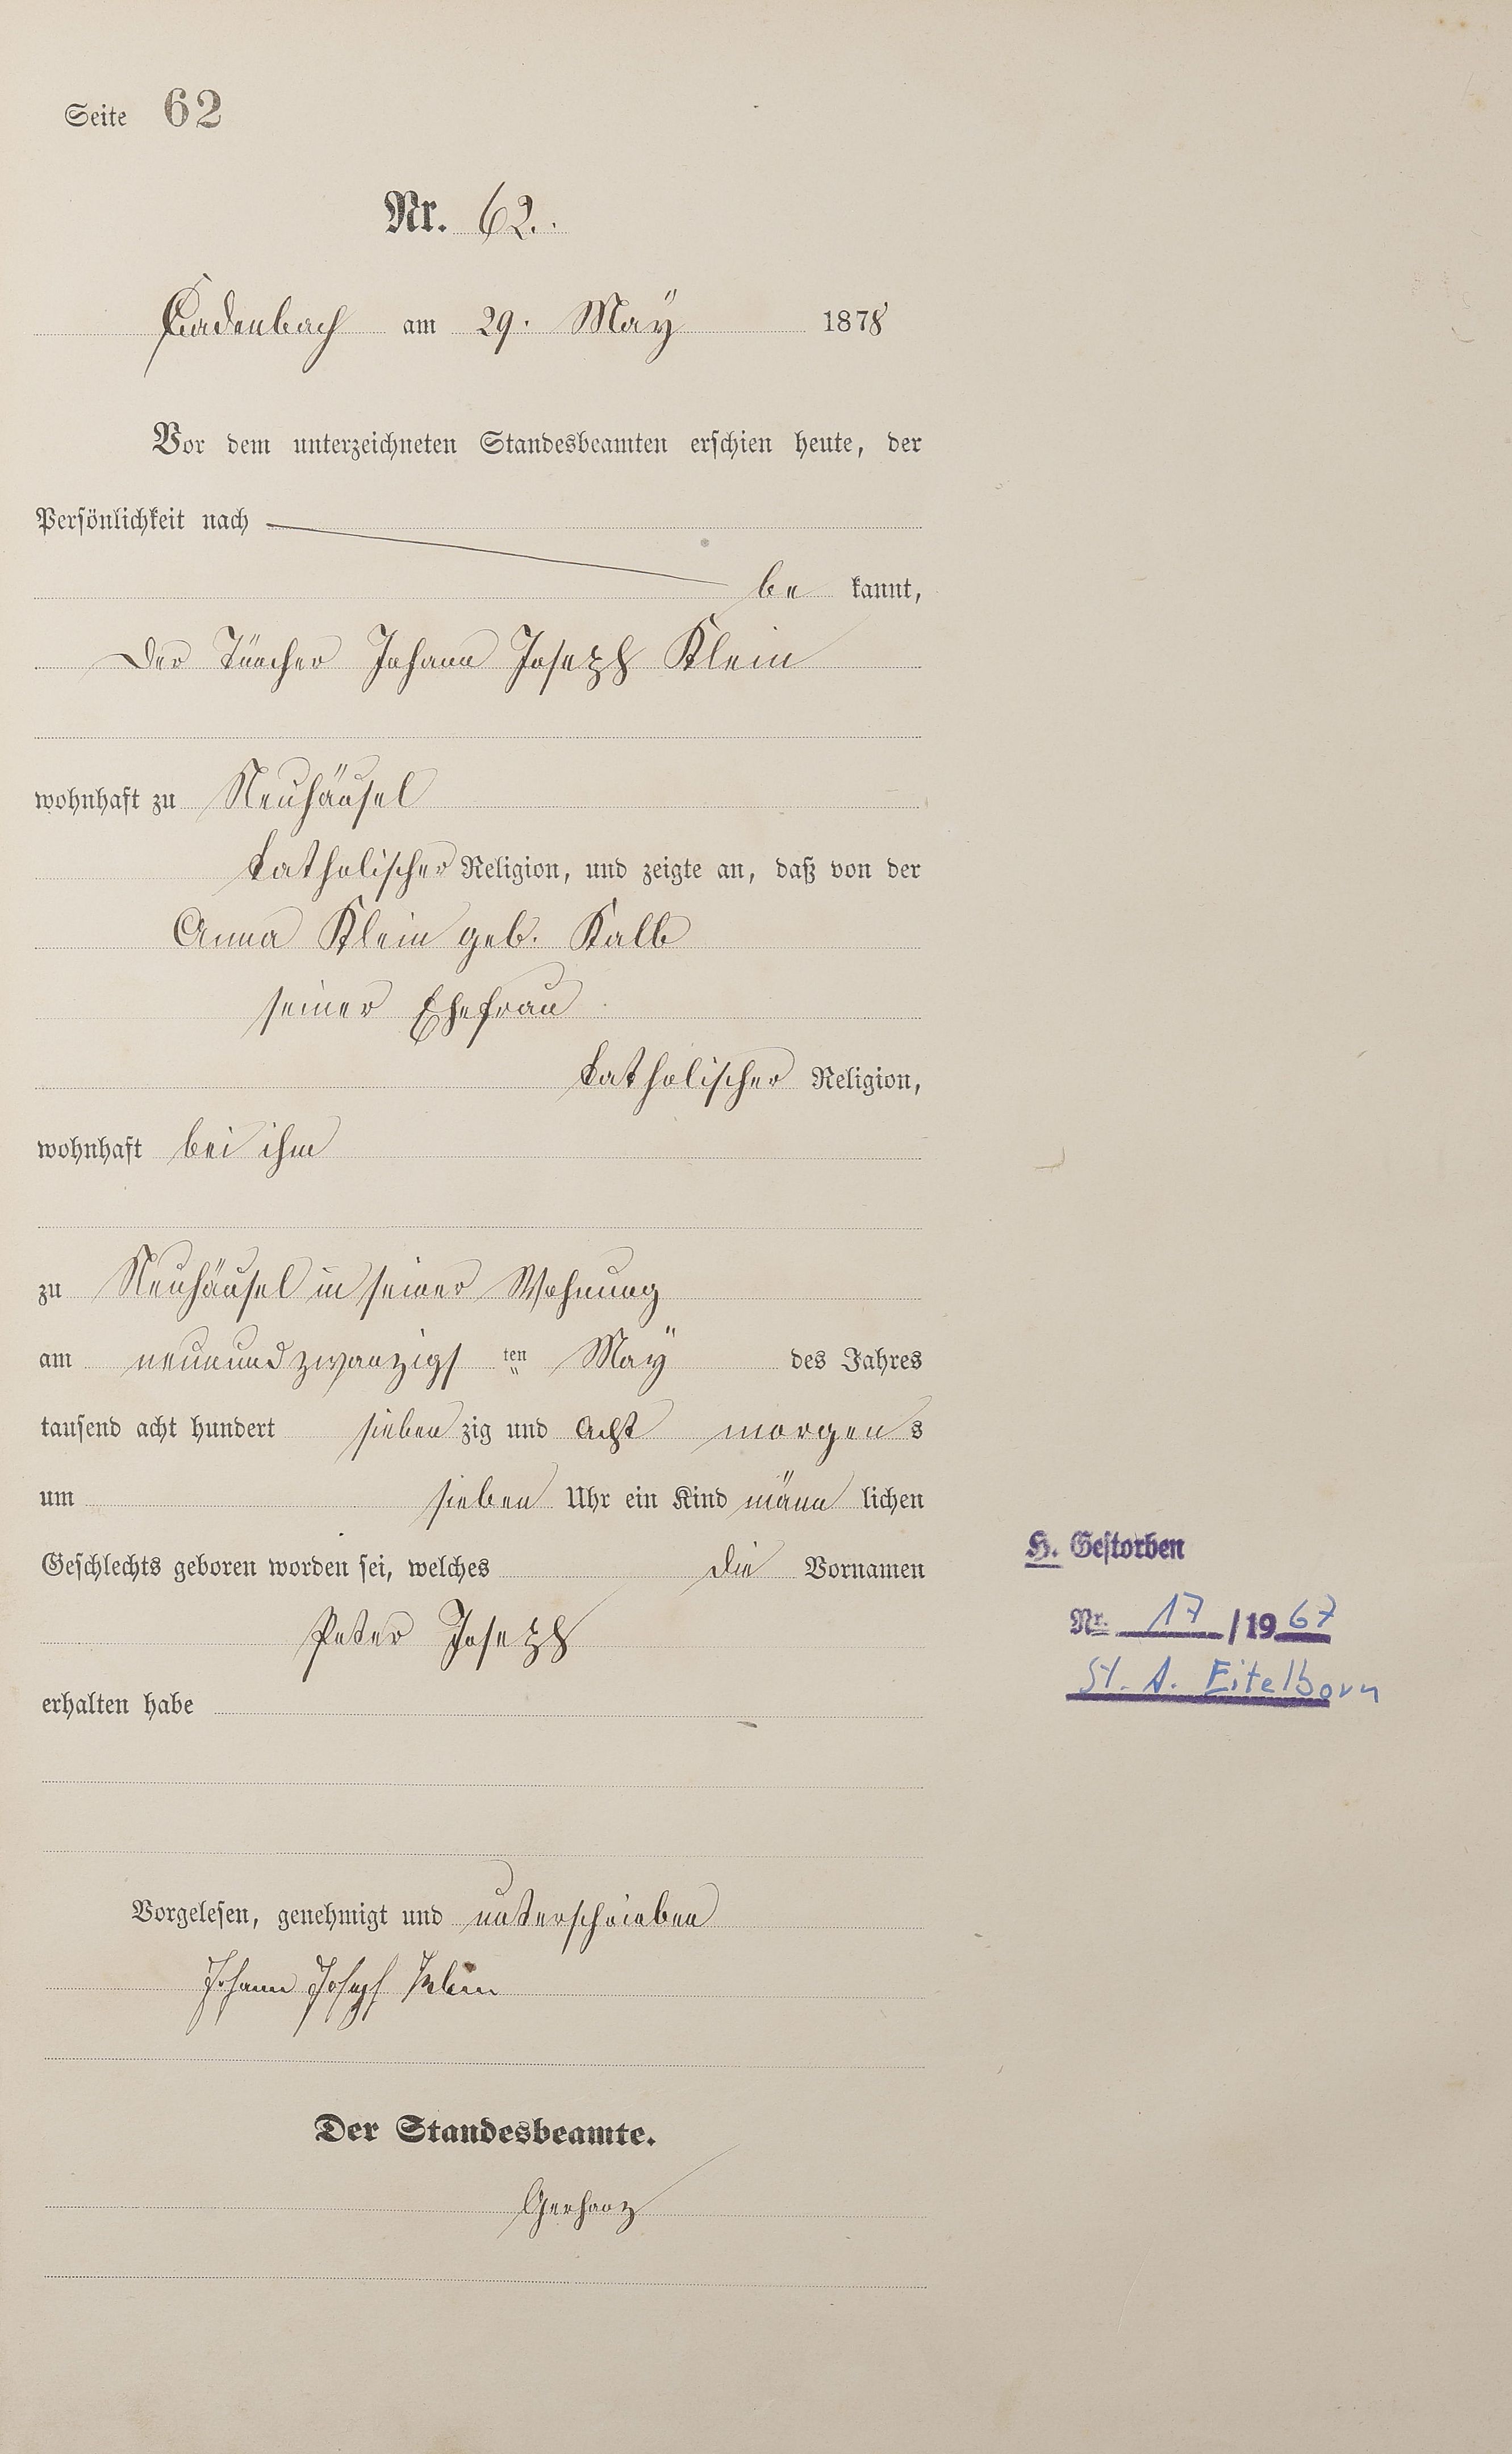 Seite 62
Nr. 62.
Cadenbach am 29. Maÿ 1878
Vor dem unterzeichneten Standesbeamten erschien heute, der
Persönlichkeit nach
be kannt,
der Tüncher Johann Joseph Klein
wohnhaft zu Neuhäusel
katholischer Religion, und zeigte an, daß von der
Anna Klein geb. Kalb
seiner Ehefrau
katholischer Religion,
wohnhaft bei ihm
zu Neuhäusel in seiner Wohnung
am neunundzwanzigs ten Maÿ des Jahres
tausend acht hundert sieben zig und acht morgens
um sieben Uhr ein Kind männ lichen
Geschlechts geboren worden sei, welches die Vornamen
Peter Joseph
erhalten habe
Vorgelesen, genehmigt und unterschrieben
Johann Josepf Klein
Der Standesbeamte.
Gerharz
H. Gestorben
Nr. 17 / 1967
St. A. Eitelborn